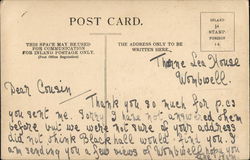 POST CARD.
THIS SPACE MAY BE USED
FOR COMMUNICATION
FOR INLAND POSTAGE ONLY.
(Post Office Regulation)
THE ADDRESS ONLY TO BE
WRITTEN HERE.
INLAND
½
STAMP
FOREIGN
1d.
Thorne Lea House
Wombwell.
Dear Cousin
Thank you so much for p.cs
you sent me. Sorry I have not answered them
before but we were not sure of your address
did not think Blackhall would find you. I
am sending you a few views of Wombwell hope you